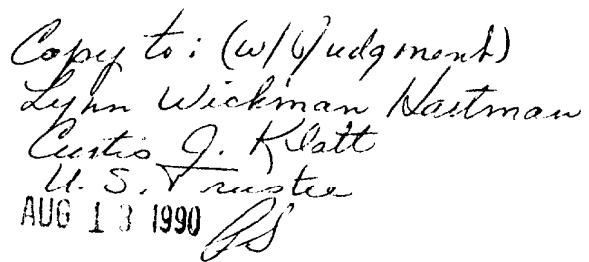 Copy to: (w/Judgment)
Lynn Wickman Hartman
Curtis J. Klatt
U. S. Trustee
AUG 13 1990
PS